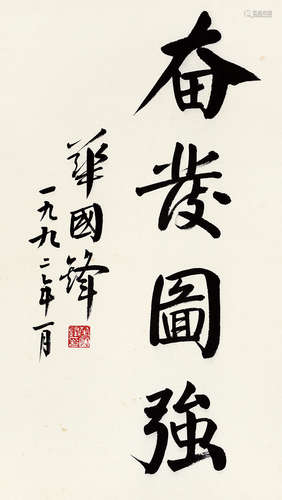 奮發圖強
華國鋒
一九九二年一月